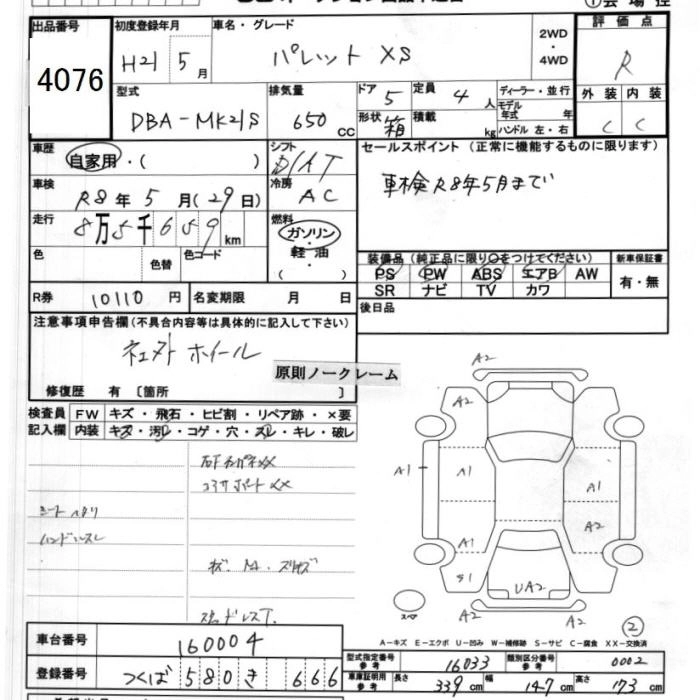 出品番号 4076
初度登録年月 H21 5月
車名・グレード パレット XS
2WD・4WD
評価点 R
外装 内装
C C
型式 DBA-MK21S
排気量 650 cc
ドア 5 定員 4 人
形状 箱 積載 kg
ディーラー・並行
モデル年式 年
ハンドル 左・右
車歴 自家用・( )
シフト
車検 R8年5月(29日)
冷房 AC
走行 8万5千659km
燃料 ガソリン・軽油・( )
色 色替 色コード
R券 10110円 名変期限 月 日
セールスポイント (正常に機能するものに限ります)
車検R8年5月まで
装備品 (純正品に限り○をつけてください)
新車保証書 有・無
PS PW ABS エアB AW
SR ナビ TV カワ
後日品
注意事項申告欄 (不具合内容等は具体的に記入して下さい)
ホイール
原則ノークレーム
修復歴 有 〔箇所 〕
検査員記入欄
FW キズ・飛石・ヒビ割・リペア跡・×要
内装 キズ・汚レ・コゲ・穴・スレ・キレ・破レ
コアサポートXX
シートヘタリ
ハンドルスレ
スタッドレスT.
A2
A2 A2
A1 A1 A1
A1 A2
A1 A1
S1 UA2
A2 A2
スペア
②
A-キズ E-エクボ U-凹み W-補修跡 S-サビ C-腐食 XX-交換済
車台番号 160004
登録番号 つくば 580 き 666
型式指定番号 参考 16033
類別区分番号 参考 0002
車庫証明用 参考 長さ 339 cm 幅 147 cm 高さ 173 cm